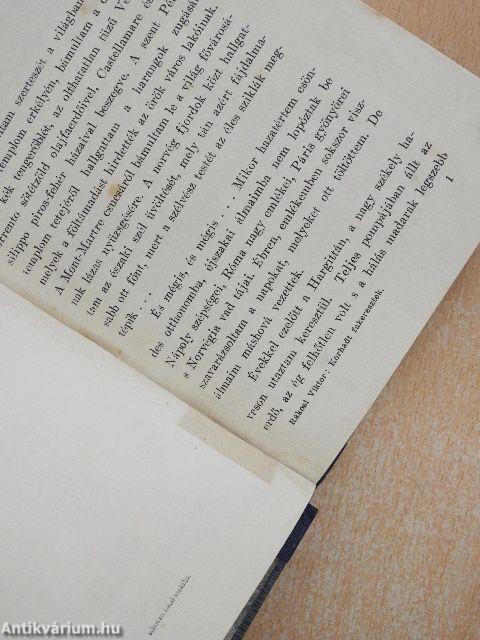 tam szerteszét a világban
templom erkélyén, bámultam a
kék tengeröblét, az olthatatlan tüzű Ve
rrento sötétzöld olajfaerdőivel, Castellamare és
silippo piros-fehér házaival beszegve. A szent Pé
templom tetejéről hallgattam a harangok zúgását
melyek a föltámadást hirdették az örök város lakóinak.
A Mont-Martre csúcsáról bámultam le a világ fővárosá-
nak lázas nyüzsgésére. A norvég fjordok közt hallgat-
tam az északi szél üvöltését, mely tán azért fájdalma-
sabb ott fönt, mert a szélvész testét az éles sziklák meg-
tépik ...
És mégis, és mégis ... Mikor hazatértem csön-
des otthonomba, éjszakai álmaimba nem lopóztak be
Nápoly szépségei, Róma nagy emlékei, Páris gyönyörei
s Norvégia vad tájai. Ébren, emlékeimben sokszor visz-
szavarázsoltam a napokat, melyeket ott töltöttem. De
álmaim máshová vezettek.
Évekkel ezelőtt a Hargitán, a nagy székely ha-
vason utaztam keresztül. Teljes pompájában állt az
erdő, az ég felhőtlen volt s a hálás madarak legszebb
Rákosi Viktor: Korhadt fakeresztek.
1
Antikvárium.hu